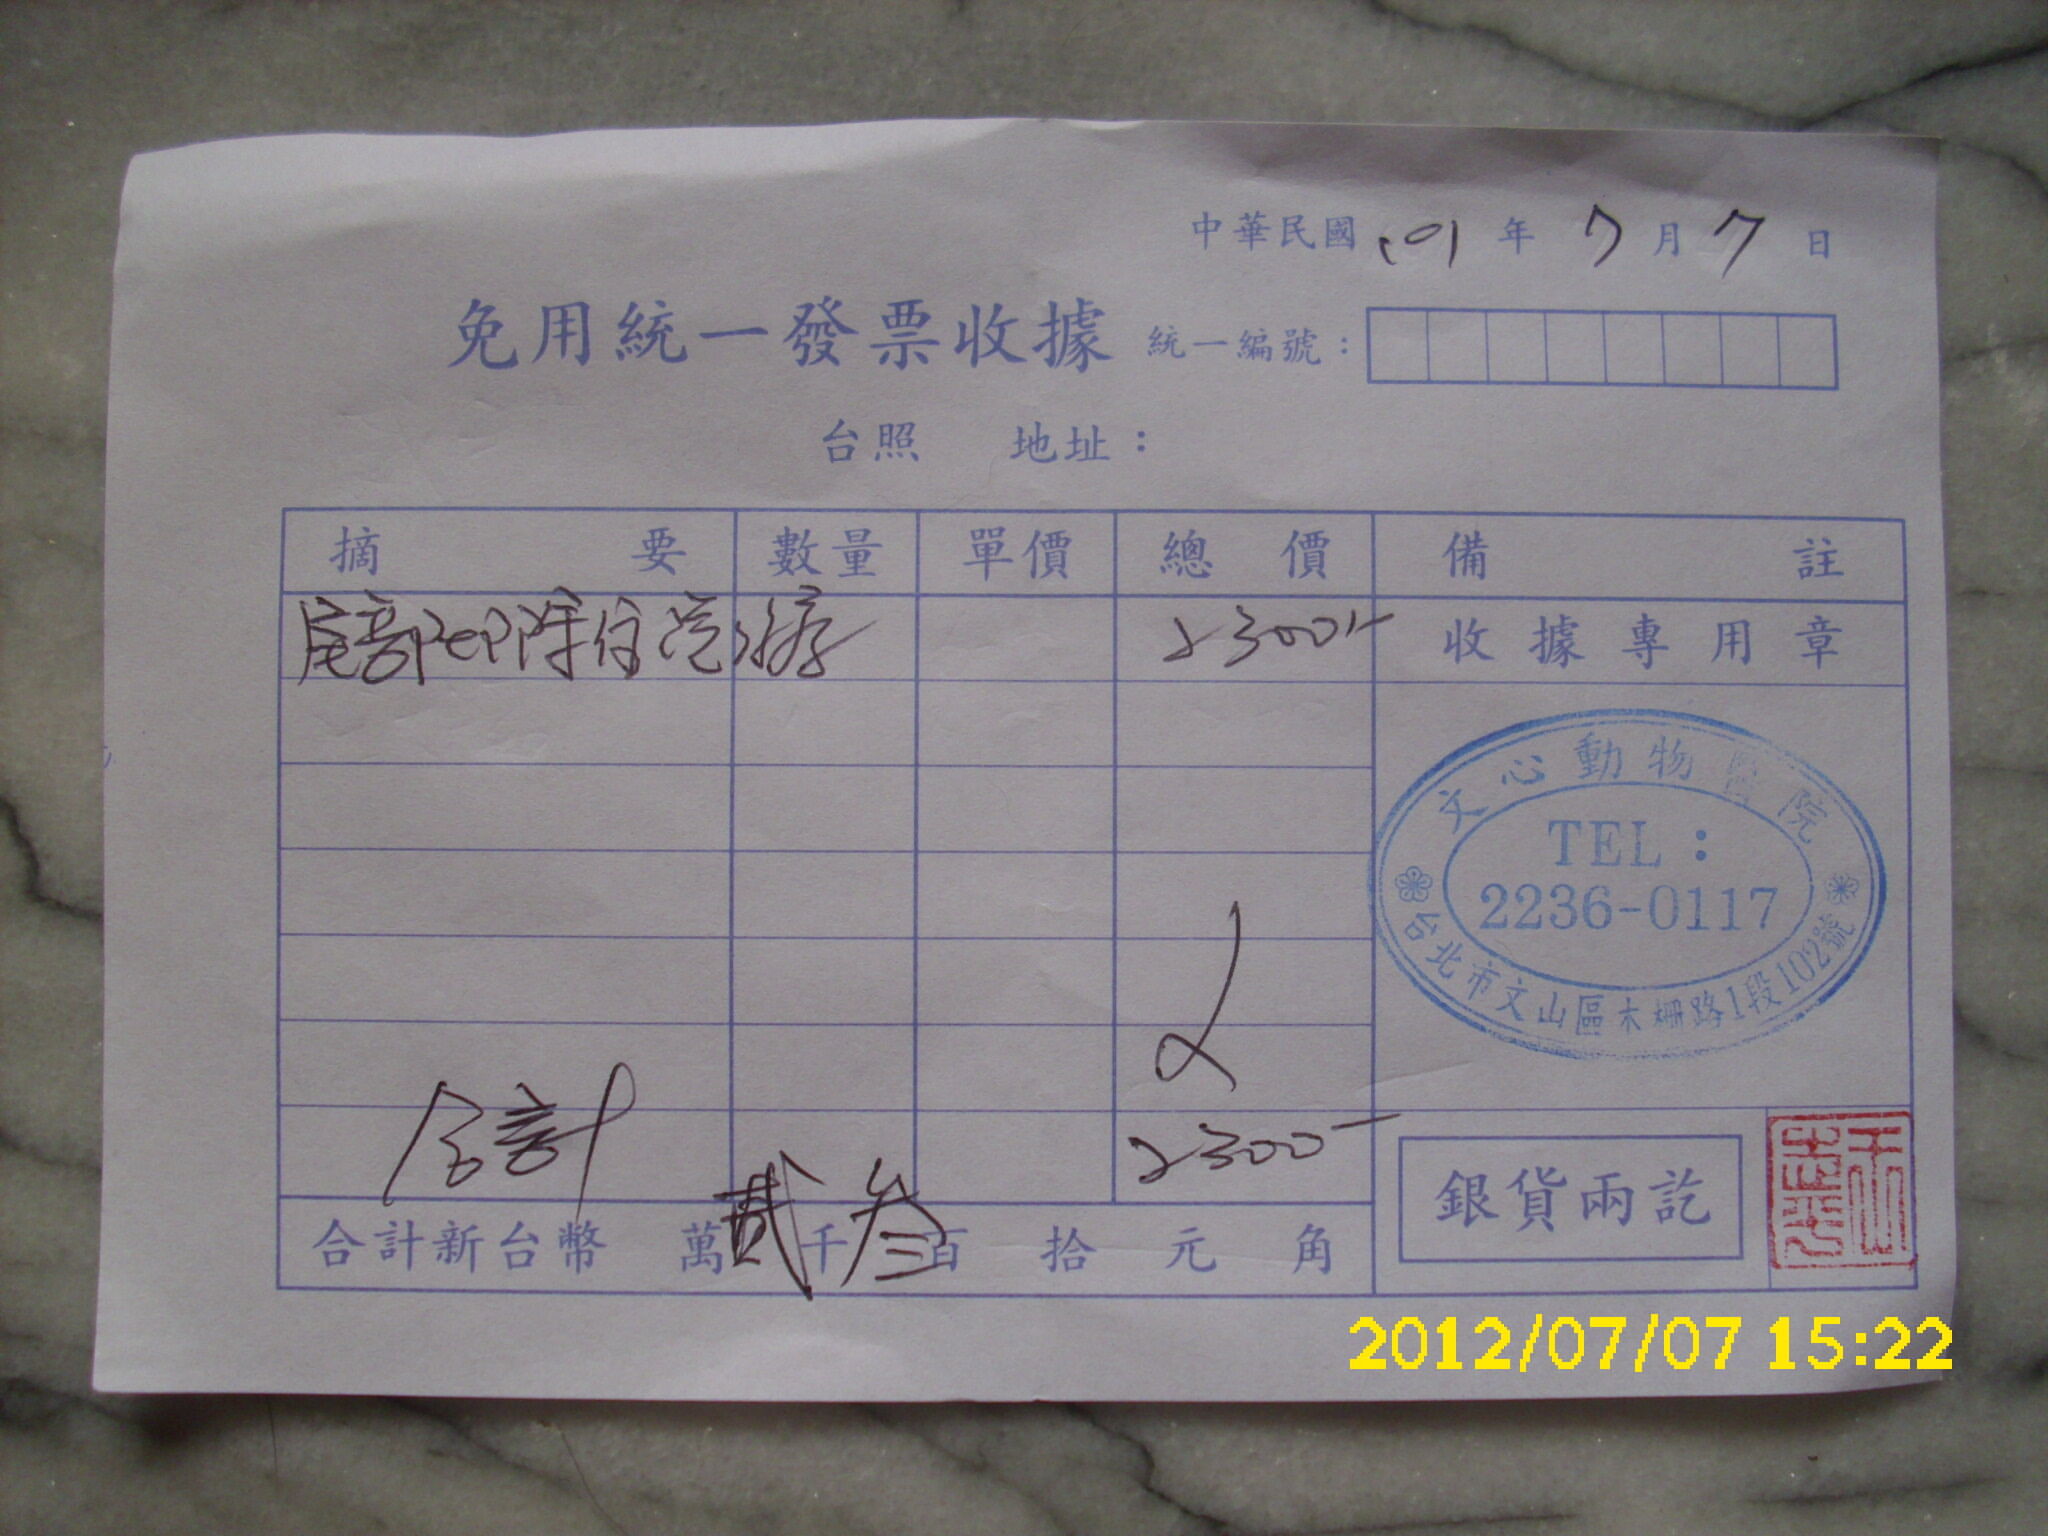 中華民國 101 年 7 月 7 日
免用統一發票收據 統一編號：
台照 地址：
摘要 數量 單價 總價 備註
尾部 住院 2300/-
收據專用章
文心動物醫院
TEL：
2236-0117
台北市文山區木柵路1段102號
合計 2300-
合計新台幣 萬貳千叁百拾元角
銀貨兩訖
2012/07/07 15:22